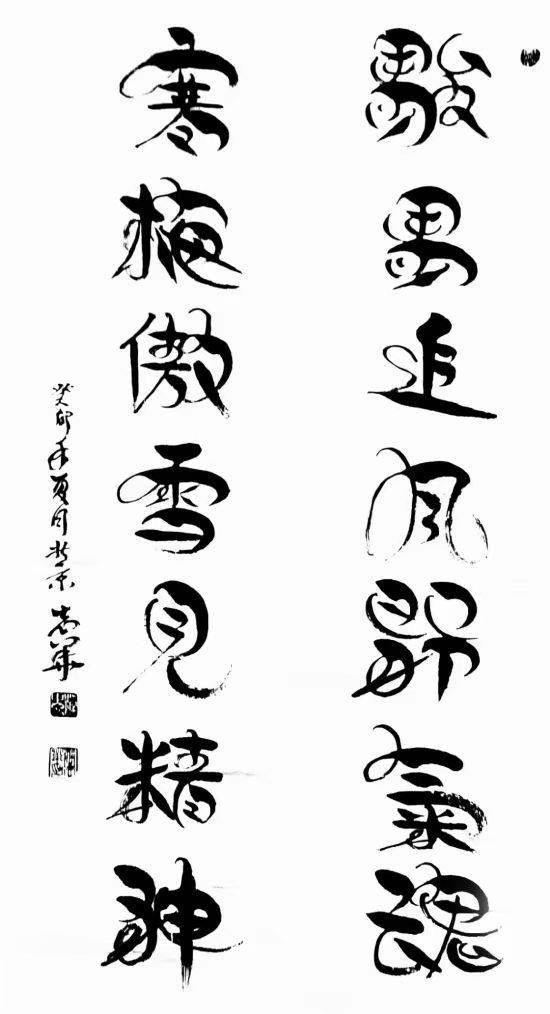 駿馬追風氣
寒梅傲雪見精神
癸卯年夏月於京 志華